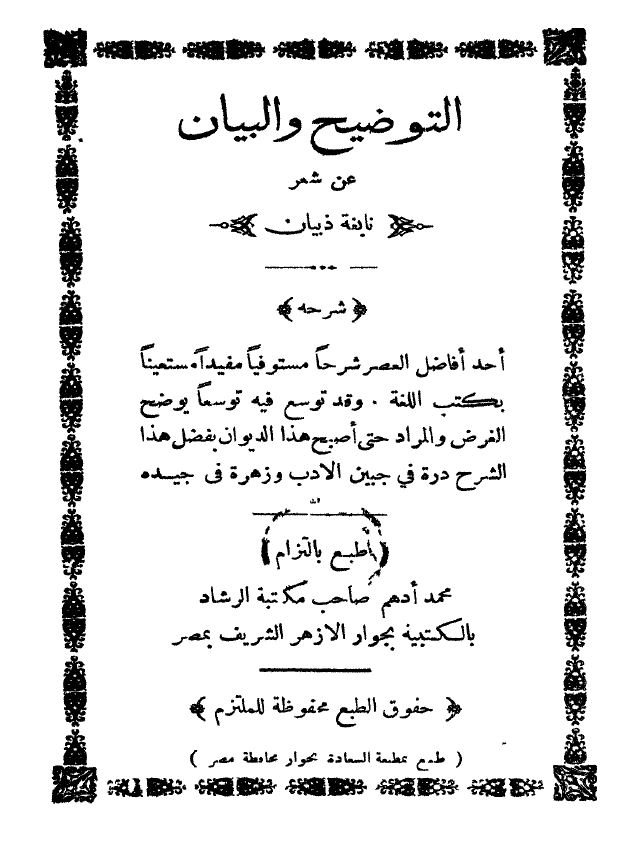 التوضيح والبيان
عن شعر
نابغة ذبيان
﴿ شرحه ﴾
أحد أفاضل العصر شرحاً مستوفياً مفيداً مستعيناً
بكتب اللغة . وقد توسع فيه توسعاً يوضح
الغرض والمراد حتى أصبح هذا الديوان بفضل هذا
الشرح درة في جبين الادب وزهرة فى جيده
﴿ طبع بالتزام ﴾
محمد أدهم صاحب مكتبة الرشاد
بالكتبية بجوار الازهر الشريف بمصر
﴿ حقوق الطبع محفوظة للملتزم ﴾
( طبع بمطبعة السعادة بجوار محافظة مصر )